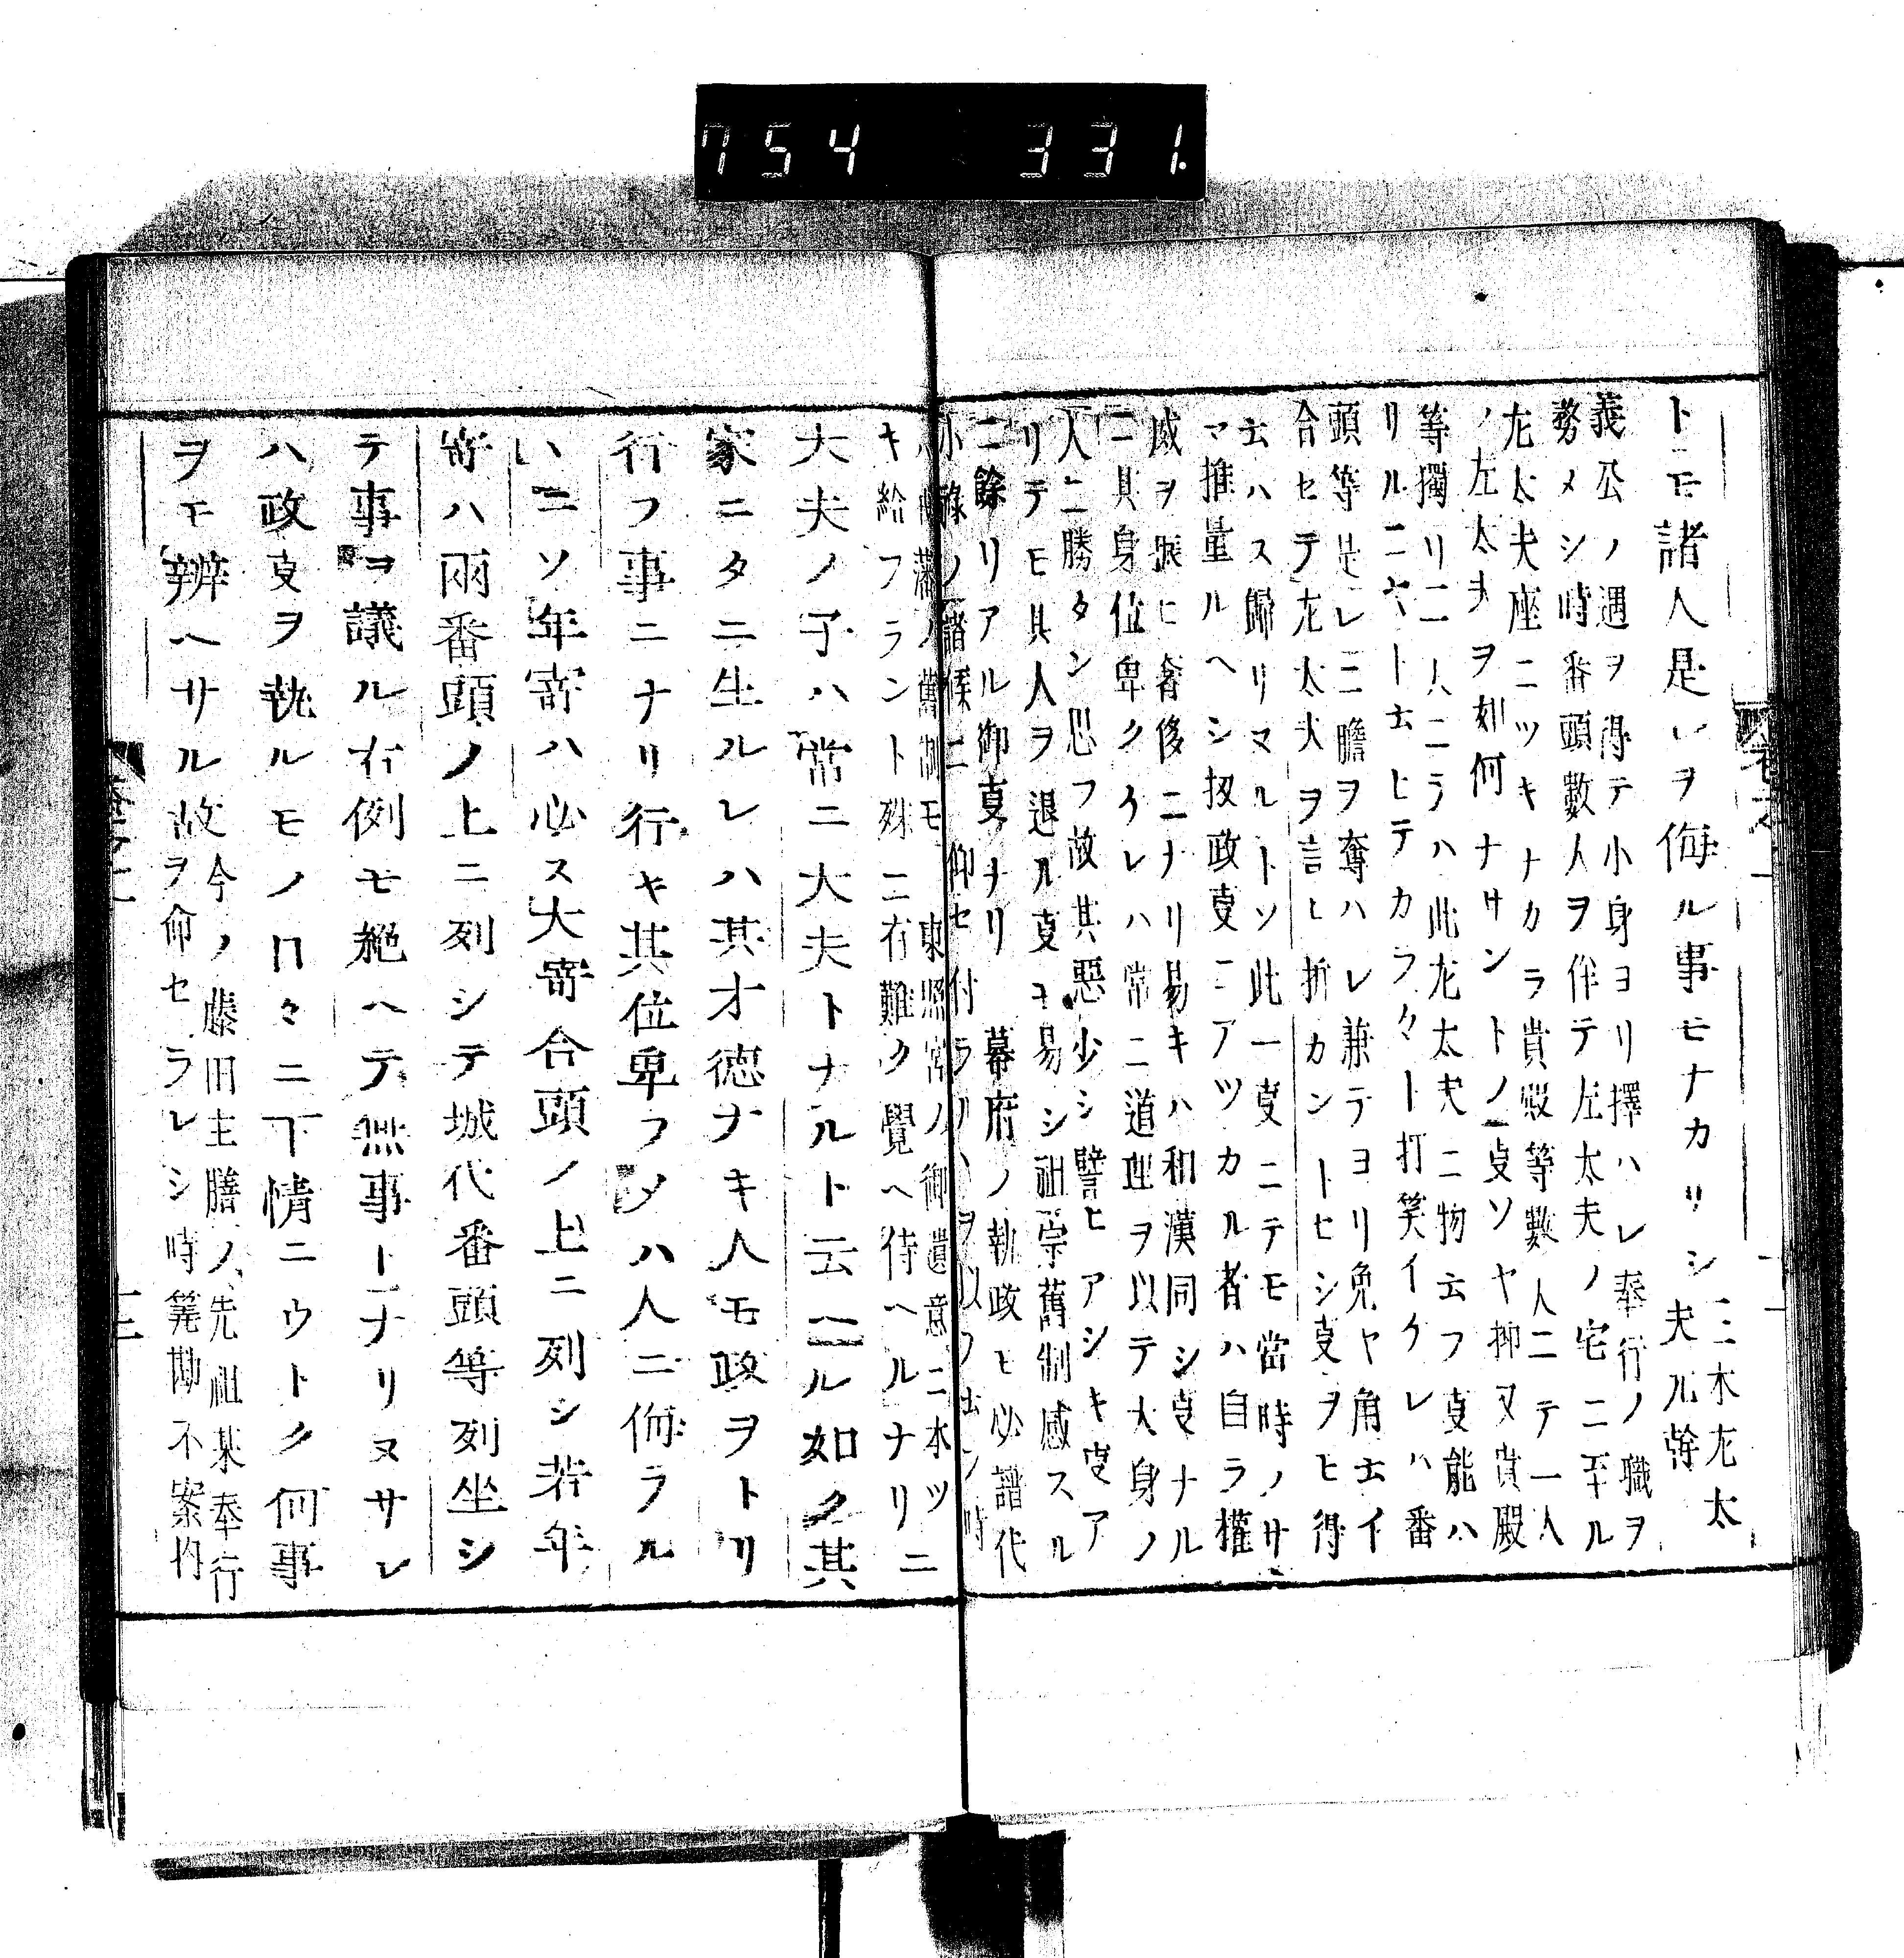 754 331.
トモ諸人是レヲ侮ル事モナカリシ
三木左太
夫元幹
義公ノ遇ヲ得テ小身ヨリ擇ハレ奉行ノ職ヲ
務メシ時番頭數人ヲ伴テ左太夫ノ宅ニ至ル
左太夫座ニツキナカラ貴殿等數人ニテ一人
ノ左太夫ヲ如何ナサントノ叓ソヤ抑又貴殿
等獨リ二人ニラハ此左太夫ニ物云フ叓能ハ
リルニヤト云ヒテカラ々ト打笑イケレハ番
頭等是レニ膽ヲ奪ハレ兼テヨリ免ヤ角云イ
合セテ左太夫ヲ言ヒ折カントヒシ叓ヲヒ得
云ハス歸リマルトソ此一叓ニテモ當時ノサ
マ推量ルヘシ扨政叓ニアツカル者ハ自ラ權
威ヲ振ヒ奢侈ニナリ易キハ和漢同シ叓ナル
ニ其身位卑クケレハ常ニ道理ヲ以テ大身ノ
人ニ勝タン思フ故其惡少シ譬ヒアシキ叓ア
リテモ其人ヲ退ル叓ヲ易シ祖宗舊制感スル
ニ餘リアル御叓ナリ 幕府ノ執政ヒ必譜代
小祿ノ諸侯ニ仰セ付ラ ヲ以フ 時
藩ノ舊制モ 東照宮ノ御遺意ニ本ツニ
キ給フラント殊ニ有難ク覺ヘ侍ヘルナリ
大夫ノ子ハ常ニ大夫トナルト云ヘル如ク其
家ニタニ生ルレハ其才德ナキ人モ政ヲトリ
行フ事ニナリ行キ其位卑フメハ人ニ侮ラル
ハニソ年寄ハ必ス大寄合頭ノ上ニ列シ若年
寄ハ兩番頭ノ上ニ列シテ城代番頭等列坐シ
テ事ヲ議ル右例モ絕ヘテ無事トナリヌサレ
ハ政叓ヲ執ルモノ日々ニ下情ニウトク何事
ヲモ辨ヘサル故
今ノ藤田主膳ノ先祖某奉行
ヲ命セラレシ時筭勘不案内